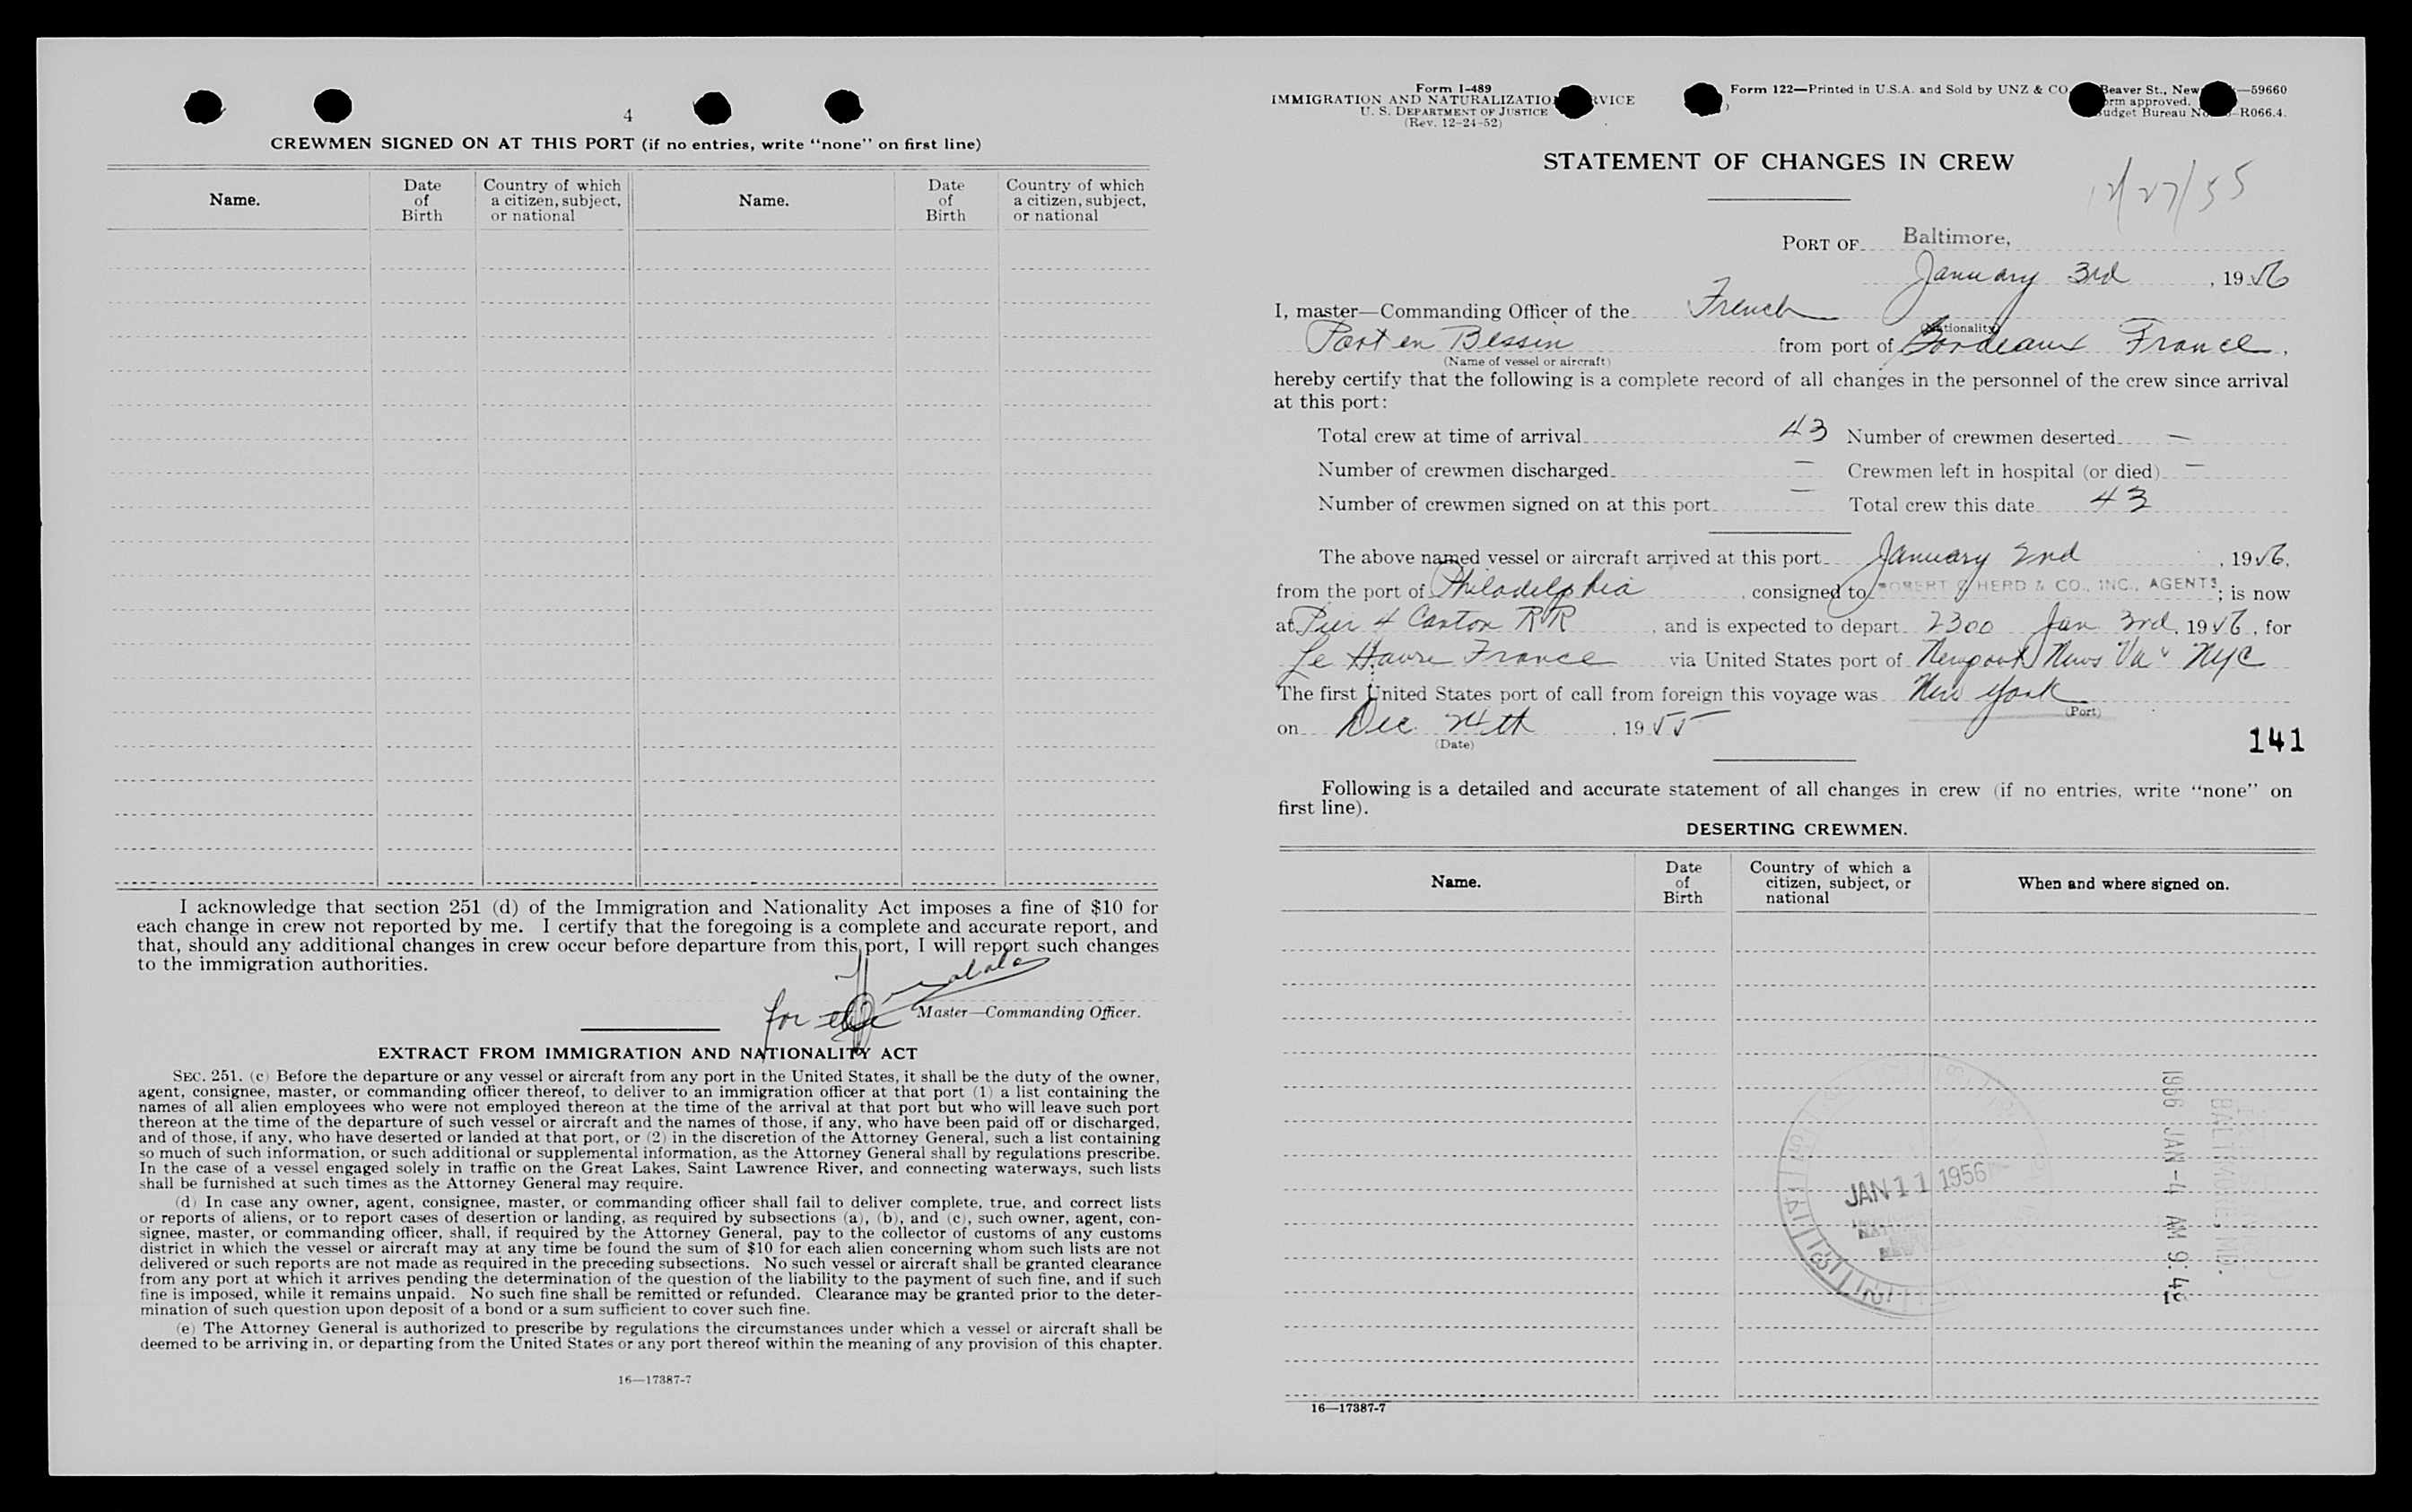 4
CREWMEN SIGNED ON AT THIS PORT (if no entries, write "none" on first line)
Name.
Date of Birth
Country of which a citizen, subject, or national
Name.
Date of Birth
Country of which a citizen, subject, or national
I acknowledge that section 251 (d) of the Immigration and Nationality Act imposes a fine of $10 for
each change in crew not reported by me. I certify that the foregoing is a complete and accurate report, and
that, should any additional changes in crew occur before departure from this port, I will report such changes
to the immigration authorities.
for the
Master—Commanding Officer.
EXTRACT FROM IMMIGRATION AND NATIONALITY ACT
SEC. 251. (c) Before the departure or any vessel or aircraft from any port in the United States, it shall be the duty of the owner,
agent, consignee, master, or commanding officer thereof, to deliver to an immigration officer at that port (1) a list containing the
names of all alien employees who were not employed thereon at the time of the arrival at that port but who will leave such port
thereon at the time of the departure of such vessel or aircraft and the names of those, if any, who have been paid off or discharged,
and of those, if any, who have deserted or landed at that port, or (2) in the discretion of the Attorney General, such a list containing
so much of such information, or such additional or supplemental information, as the Attorney General shall by regulations prescribe.
In the case of a vessel engaged solely in traffic on the Great Lakes, Saint Lawrence River, and connecting waterways, such lists
shall be furnished at such times as the Attorney General may require.
(d) In case any owner, agent, consignee, master, or commanding officer shall fail to deliver complete, true, and correct lists
or reports of aliens, or to report cases of desertion or landing, as required by subsections (a), (b), and (c), such owner, agent, con-
signee, master, or commanding officer, shall, if required by the Attorney General, pay to the collector of customs of any customs
district in which the vessel or aircraft may at any time be found the sum of $10 for each alien concerning whom such lists are not
delivered or such reports are not made as required in the preceding subsections. No such vessel or aircraft shall be granted clearance
from any port at which it arrives pending the determination of the question of the liability to the payment of such fine, and if such
fine is imposed, while it remains unpaid. No such fine shall be remitted or refunded. Clearance may be granted prior to the deter-
mination of such question upon deposit of a bond or a sum sufficient to cover such fine.
(e) The Attorney General is authorized to prescribe by regulations the circumstances under which a vessel or aircraft shall be
deemed to be arriving in, or departing from the United States or any port thereof within the meaning of any provision of this chapter.
16—17387-7
Form I-489
IMMIGRATION AND NATURALIZATIO RVICE
U. S. DEPARTMENT OF JUSTICE
(Rev. 12-24-52)
Form 122—Printed in U.S.A. and Sold by UNZ & CO. Beaver St., New —59660
orm approved.
udget Bureau No. -R066.4.
STATEMENT OF CHANGES IN CREW
12/27/55
PORT OF Baltimore,
January 3rd, 1956
I, master—Commanding Officer of the French
(Nationality)
Port en Bessin from port of Bordeaux France,
(Name of vessel or aircraft)
hereby certify that the following is a complete record of all changes in the personnel of the crew since arrival
at this port:
Total crew at time of arrival 43 Number of crewmen deserted —
Number of crewmen discharged — Crewmen left in hospital (or died) —
Number of crewmen signed on at this port — Total crew this date 43
The above named vessel or aircraft arrived at this port January 2nd, 1956,
from the port of Philadelphia, consigned to ROBERT C HERD & CO., INC., AGENTS; is now
at Pier 4 Canton RR, and is expected to depart 2300 Jan 3rd, 1956, for
Le Havre France via United States port of Newport News Va & NYC
The first United States port of call from foreign this voyage was New York
(Port)
on Dec. 24th, 1955
(Date)
141
Following is a detailed and accurate statement of all changes in crew (if no entries, write "none" on
first line).
DESERTING CREWMEN.
Name.
Date of Birth
Country of which a citizen, subject, or national
When and where signed on.
JAN 11 1956
1956 JAN -4 AM 9:42
BALTIMORE, MD.
16—17387-7